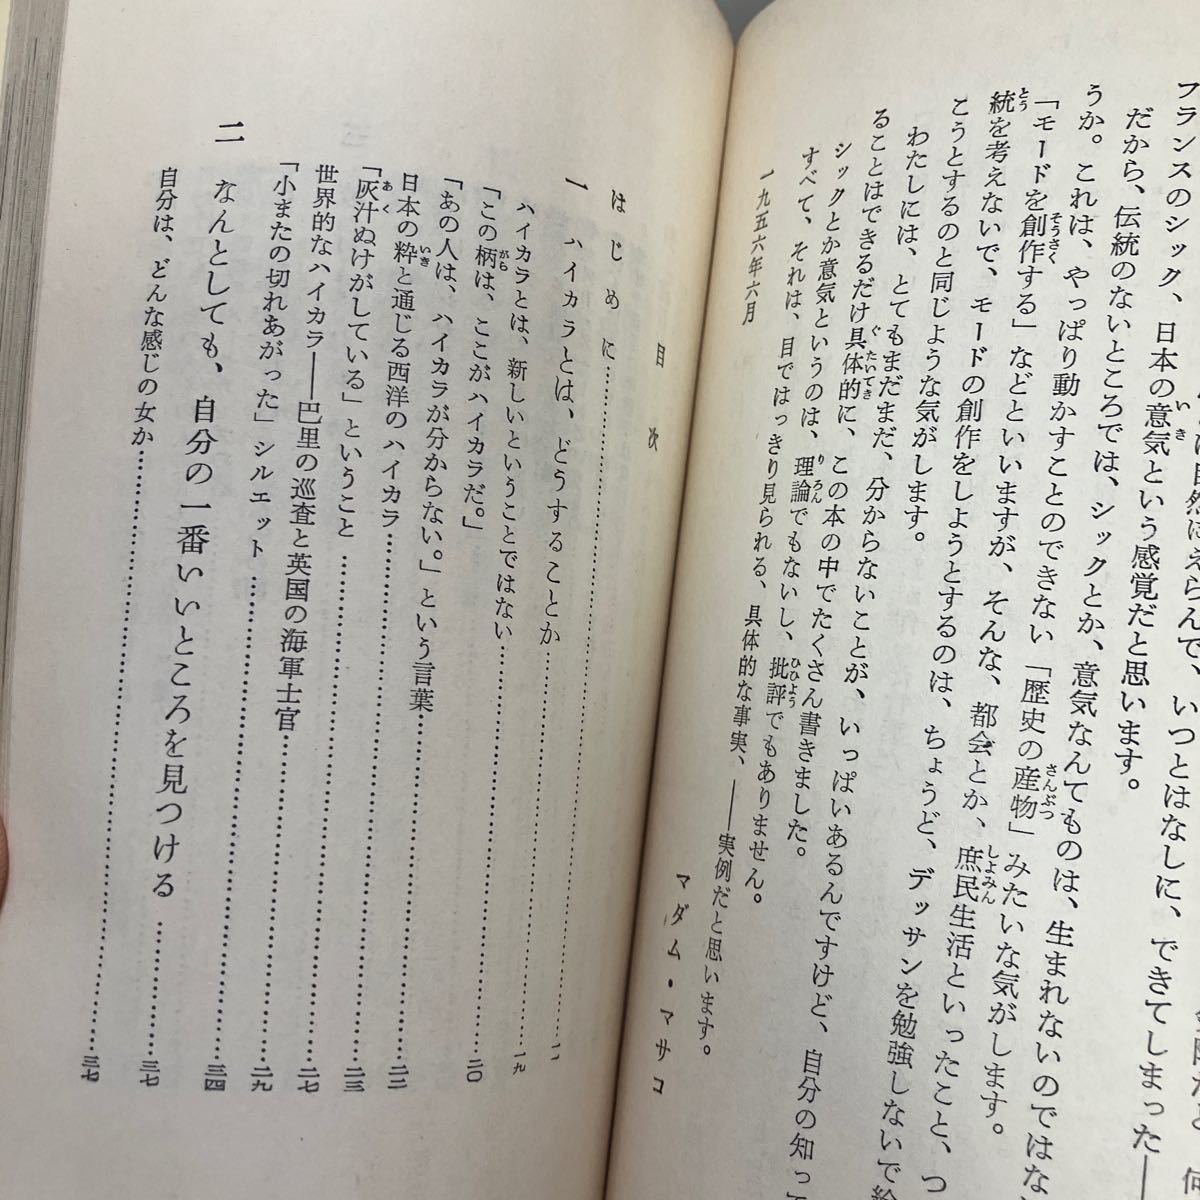 自然にえらんで、いつとはなしに、できてしまった――
フランスのシック、日本の意気という感覚だと思います。
だから、伝統のないところでは、シックとか、意気なんてものは、生まれないのではな
うか。これは、やっぱり動かすことのできない「歴史の産物」みたいな気がします。
「モードを創作する」などといいますが、そんな、都会とか、庶民生活といったこと、つ
統を考えないで、モードの創作をしようとするのは、ちょうど、デッサンを勉強しないで絵
こうとするのと同じような気がします。
わたしには、とてもまだまだ、分からないことが、いっぱいあるんですけど、自分の知っ
ることはできるだけ具体的に、この本の中でたくさん書きました。
シックとか意気というのは、理論でもないし、批評でもありません。
すべて、それは、目ではっきり見られる、具体的な事実、――実例だと思います。
一九五六年六月
マダム・マサコ
目次
はじめに
一 ハイカラとは、どうすることか
ハイカラとは、新しいということではない 一九
「この柄は、ここがハイカラだ。」 二〇
「あの人は、ハイカラが分からない。」という言葉
日本の粋と通じる西洋のハイカラ 二二
「灰汁ぬけがしている」ということ 二三
世界的なハイカラ――巴里の巡査と英国の海軍士官 二七
「小またの切れあがった」シルエット 二九
三四
二 なんとしても、自分の一番いいところを見つける 三七
自分は、どんな感じの女か 三七